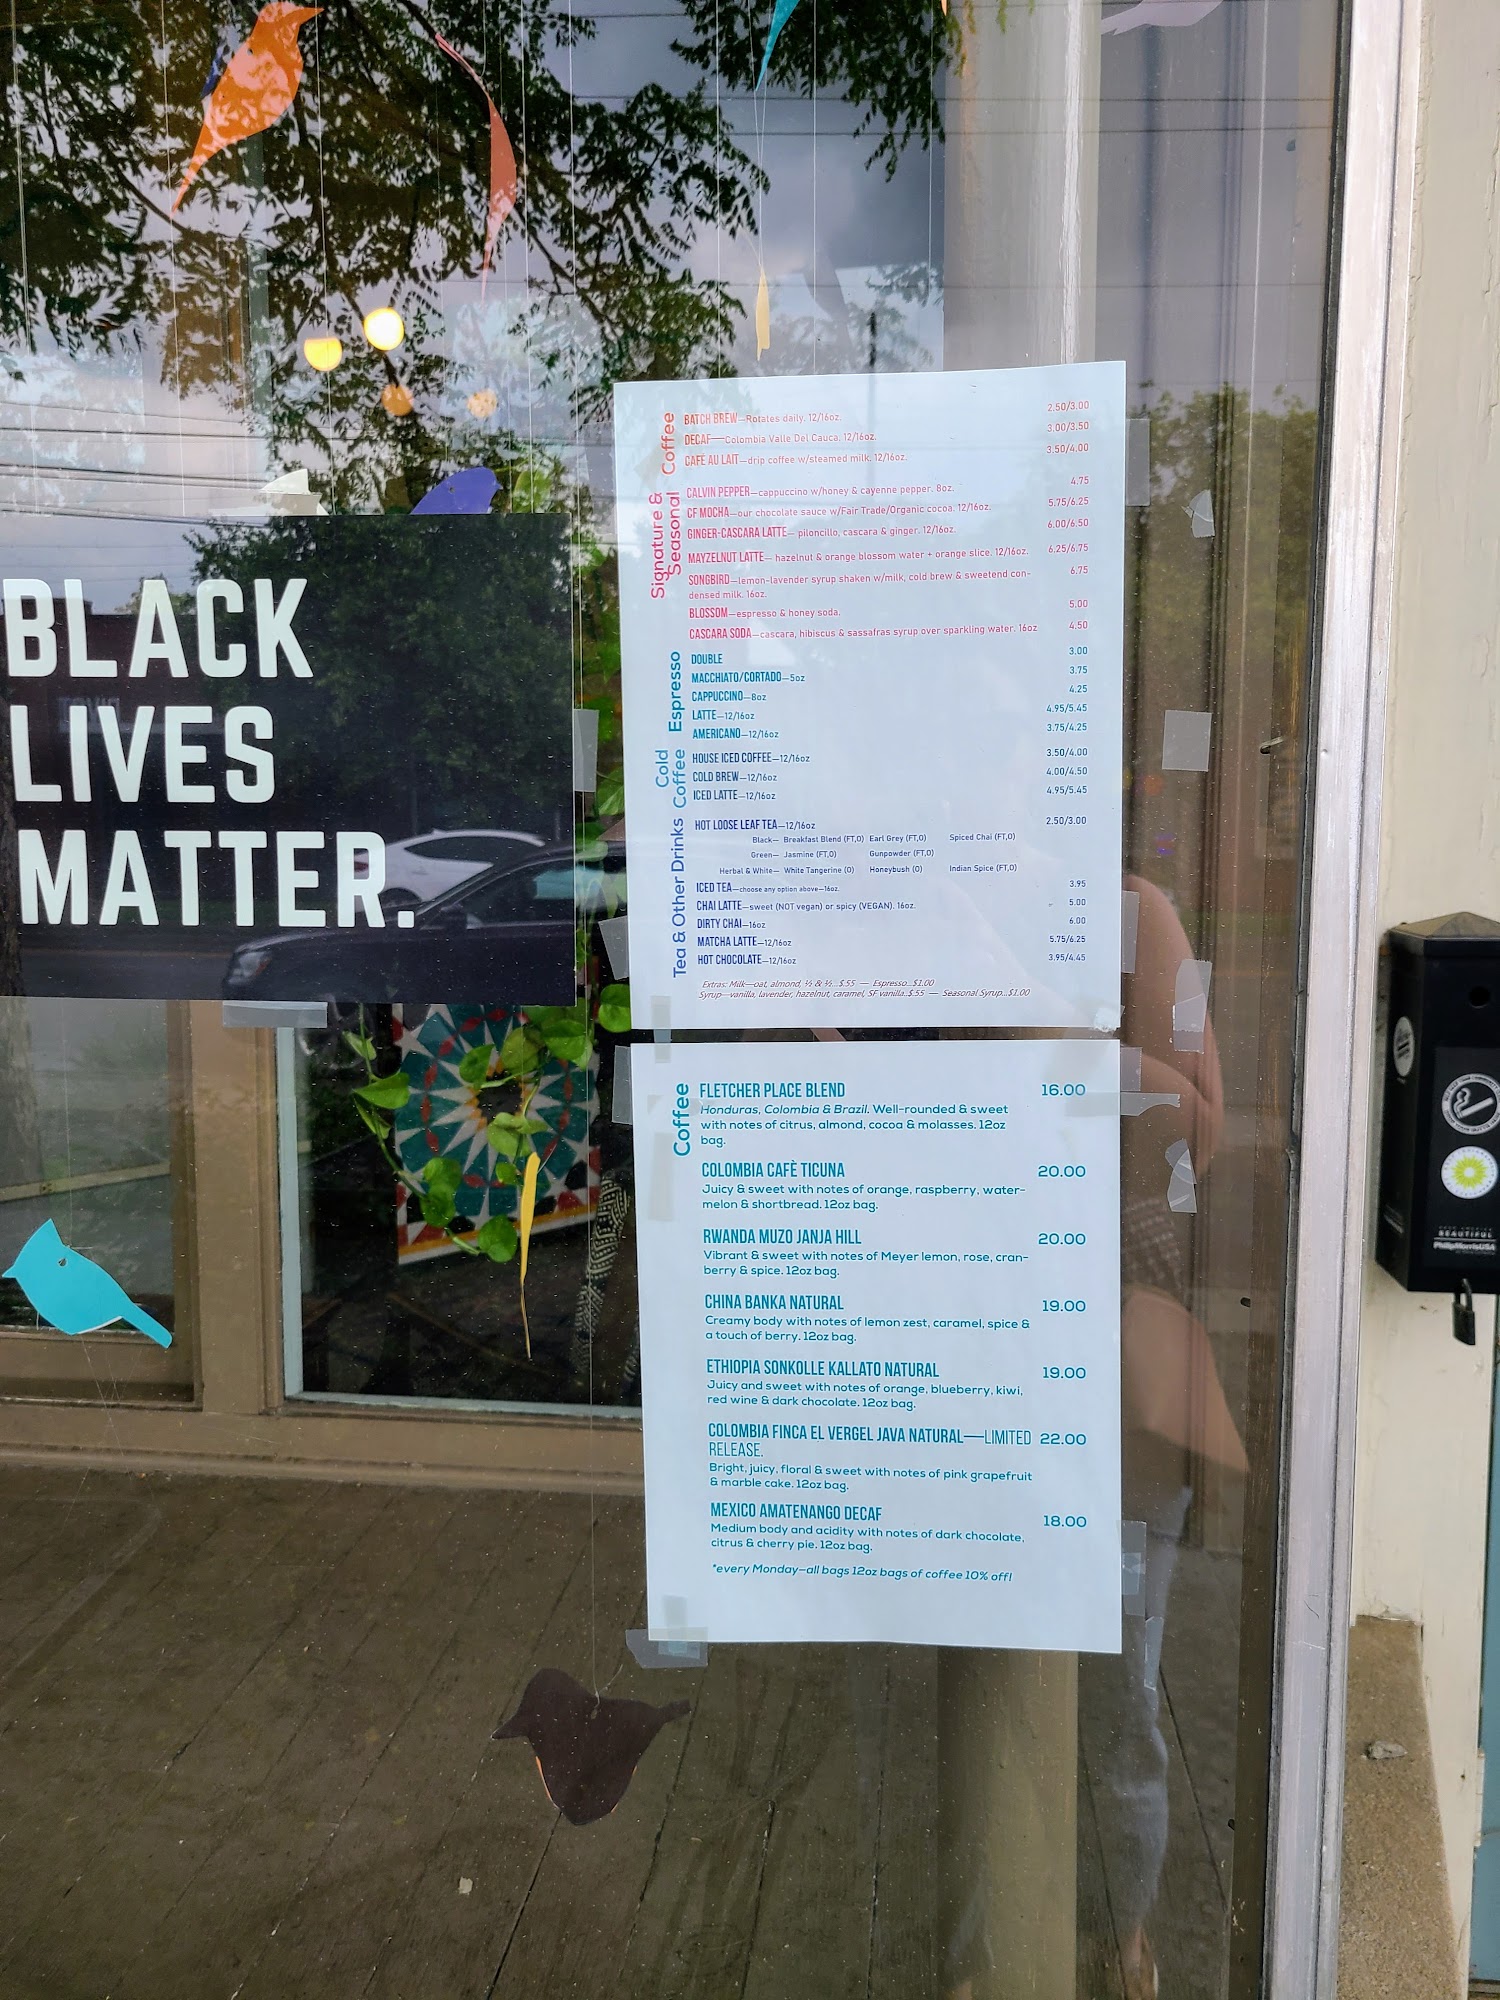 BLACK
LIVES
MATTER.
Coffee
BATCH BREW—Rotates daily. 12/16oz. 2.50/3.00
DECAF—Colombia Valle Del Cauca. 12/16oz. 3.00/3.50
CAFE AU LAIT—drip coffee w/steamed milk. 12/16oz. 3.50/4.00
Signature &
Seasonal
CALVIN PEPPER—cappuccino w/honey & cayenne pepper. 8oz. 4.75
CF MOCHA—our chocolate sauce w/Fair Trade/Organic cocoa. 12/16oz. 5.75/6.25
GINGER-CASCARA LATTE— piloncillo, cascara & ginger. 12/16oz. 6.00/6.50
MAYZELNUT LATTE— hazelnut & orange blossom water + orange slice. 12/16oz. 6.25/6.75
SONGBIRD—lemon-lavender syrup shaken w/milk, cold brew & sweetend con- 6.75
densed milk. 16oz.
BLOSSOM—espresso & honey soda. 5.00
CASCARA SODA—cascara, hibiscus & sassafras syrup over sparkling water. 16oz 4.50
Espresso
DOUBLE 3.00
MACCHIATO/CORTADO—5oz 3.75
CAPPUCCINO—8oz 4.25
LATTE—12/16oz 4.95/5.45
AMERICANO—12/16oz 3.75/4.25
Cold
Coffee
HOUSE ICED COFFEE—12/16oz 3.50/4.00
COLD BREW—12/16oz 4.00/4.50
ICED LATTE—12/16oz 4.95/5.45
Tea & Other Drinks
HOT LOOSE LEAF TEA—12/16oz 2.50/3.00
Black— Breakfast Blend (FT,O) Earl Grey (FT,O) Spiced Chai (FT,O)
Green— Jasmine (FT,O) Gunpowder (FT,O)
Herbal & White— White Tangerine (O) Honeybush (O) Indian Spice (FT,O)
ICED TEA—choose any option above—16oz. 3.95
CHAI LATTE—sweet (NOT vegan) or spicy (VEGAN). 16oz. 5.00
DIRTY CHAI—16oz 6.00
MATCHA LATTE—12/16oz 5.75/6.25
HOT CHOCOLATE—12/16oz 3.95/4.45
Extras: Milk—oat, almond, ½ & ½...$.55 — Espresso...$1.00
Syrup—vanilla, lavender, hazelnut, caramel, SF vanilla..$.55 — Seasonal Syrup...$1.00
Coffee
FLETCHER PLACE BLEND 16.00
Honduras, Colombia & Brazil. Well-rounded & sweet
with notes of citrus, almond, cocoa & molasses. 12oz
bag.
COLOMBIA CAFÈ TICUNA 20.00
Juicy & sweet with notes of orange, raspberry, water-
melon & shortbread. 12oz bag.
RWANDA MUZO JANJA HILL 20.00
Vibrant & sweet with notes of Meyer lemon, rose, cran-
berry & spice. 12oz bag.
CHINA BANKA NATURAL 19.00
Creamy body with notes of lemon zest, caramel, spice &
a touch of berry. 12oz bag.
ETHIOPIA SONKOLLE KALLATO NATURAL 19.00
Juicy and sweet with notes of orange, blueberry, kiwi,
red wine & dark chocolate. 12oz bag.
COLOMBIA FINCA EL VERGEL JAVA NATURAL—LIMITED 22.00
RELEASE.
Bright, juicy, floral & sweet with notes of pink grapefruit
& marble cake. 12oz bag.
MEXICO AMATENANGO DECAF 18.00
Medium body and acidity with notes of dark chocolate,
citrus & cherry pie. 12oz bag.
*every Monday—all bags 12oz bags of coffee 10% off!
BEAUTIFUL
PhilipMorrisUSA